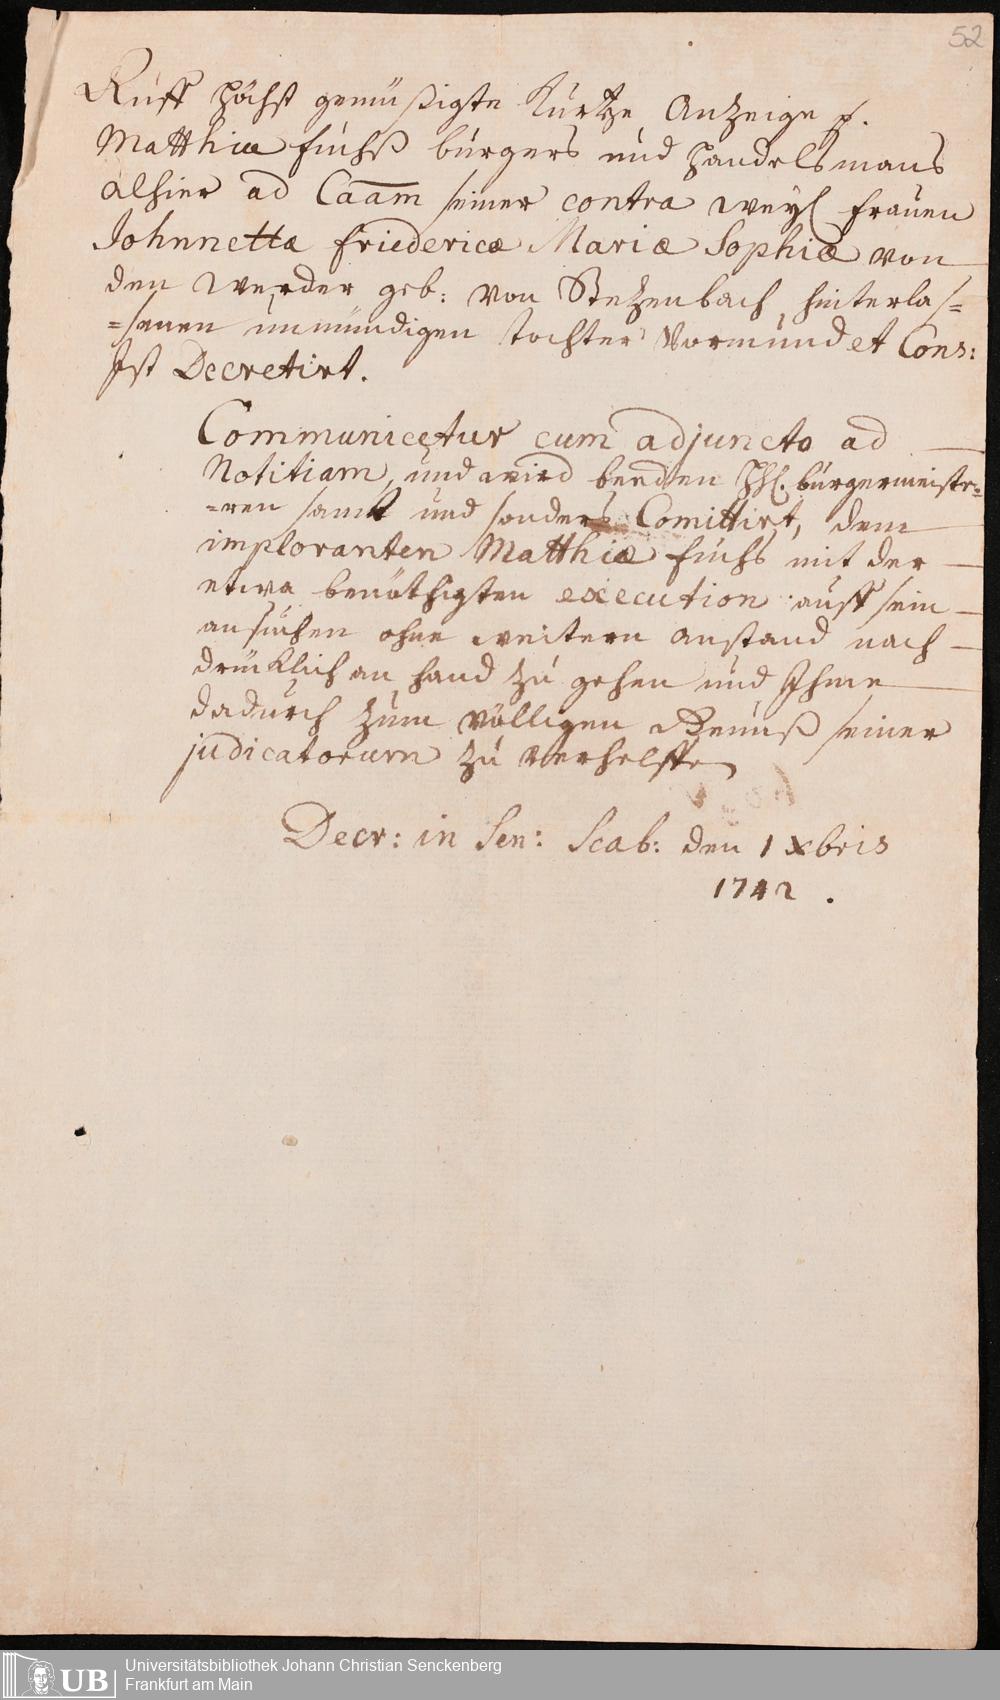 52
Auff höchst gemüßigte Kurtze Anzeige p.
Matthiæ Fuchß bürgers und handelsmans
alhier ad Caãm seiner contra weyl frauen
Johnnetta Friedericæ Mariæ Sophiæ von
den Werder geb: von Stetzenbach, hinterlas=
=senen unmündigen tochter Vormund et Cons:
Ist Decretirt.
Communicetur cum adjuncto ad
Notitiam, und wird beeden HH. bürgermeiste=
=ren samt und sonders Comittirt, dem
imploranten Matthiæ Fuchs mit der
etwa benöthigten execution auff sein
ansuchen ohne weitern anstand nach
drücklich an hand zu gehen und Ihme
dadurch zum völligen Genuß seiner
judicatorum zu verhelffen
Decr: in Sen: Scab: den 1 xbris
1742.
UB
Universitätsbibliothek Johann Christian Senckenberg
Frankfurt am Main